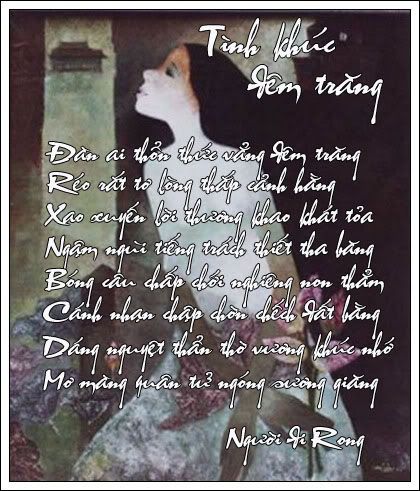 Tình khúc
đêm trăng
Đàn ai thổn thức vẳng đêm trăng
Réo rắt tơ lòng thấp cảnh hằng
Xao xuyến lời thương khao khát tỏa
Ngậm ngùi tiếng trách thiết tha băng
Bóng cầu chấp chới nghiêng non thẳm
Cánh nhạn chập chờn chếch đất bằng
Dáng nguyệt thẩn thờ vương khúc nhớ
Mơ màng quân tử ngóng sương giăng
Người Đi Rong